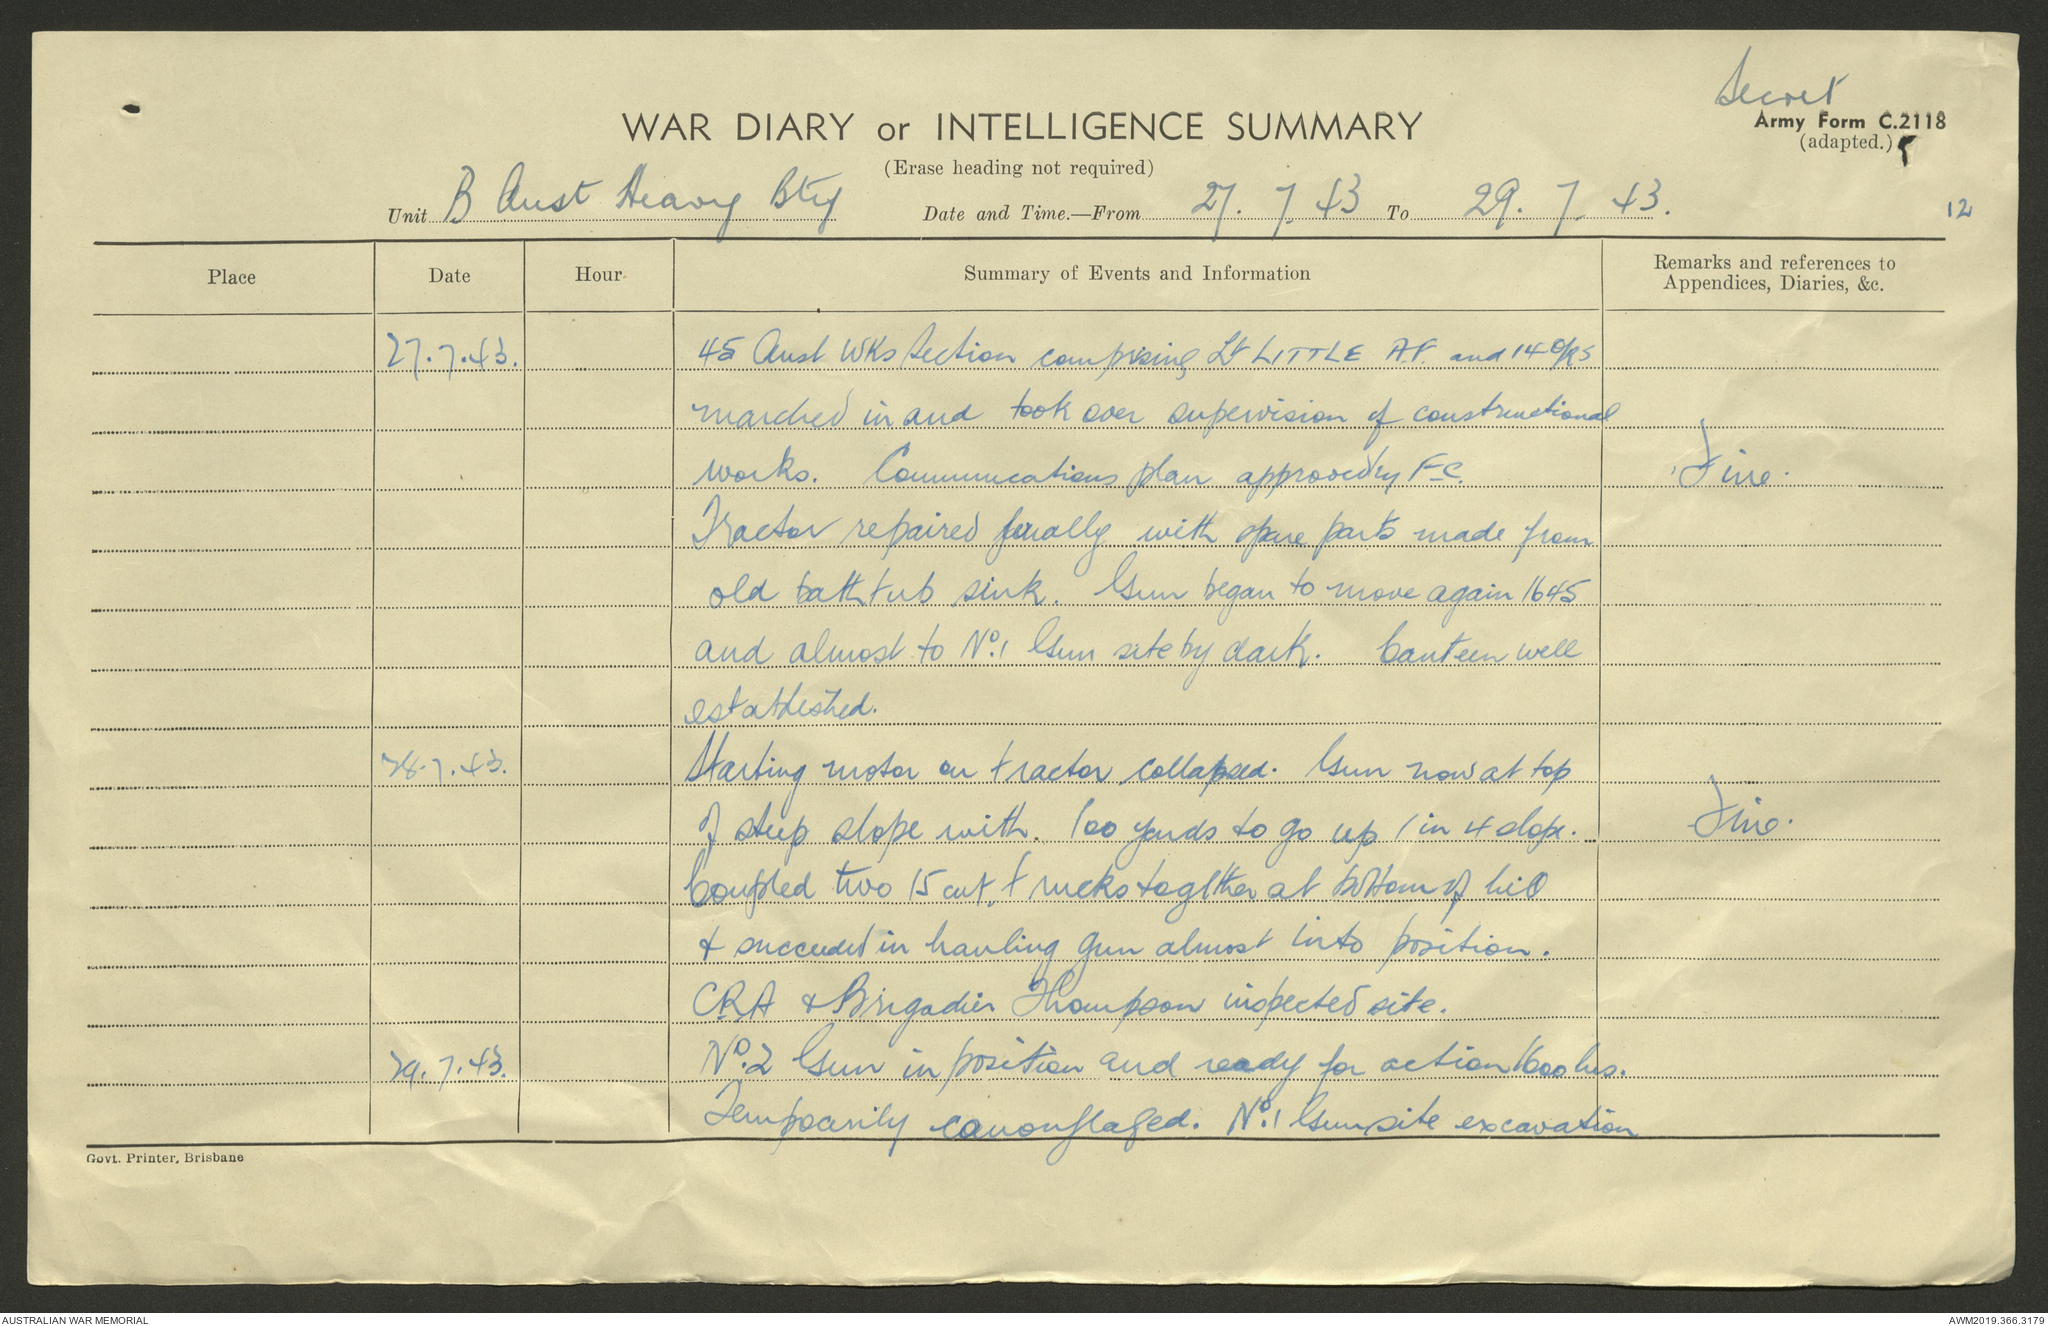 Secret
WAR DIARY or INTELLIGENCE SUMMARY
Army Form C.2118
(adapted.)
(Erase heading not required)
Unit B Aust Heavy Bty Date and Time.—From 27. 7. 43 To 29. 7. 43.
12
Place Date Hour Summary of Events and Information Remarks and references to
Appendices, Diaries, &c.
27.7.43. 45 Aust Wks Section comprising Lt LITTLE A.F. and 14 O/Rs
marched in and took over supervision of constructional
works. Communications plan approved by F-C. Fine.
Tractor repaired finally with spare parts made from
old bath tub sink. Gun began to move again 1645
and almost to No.1 Gun site by dark. Canteen well
established.
28.7.43. Starting motor on tractor collapsed. Gun now at top
of steep slope with. 100 yards to go up 1 in 4 slope. Fine.
Coupled two 15 cwt. trucks togther at bottom of hill
& succeeded in hauling gun almost into position.
CRA & Brigadier Thompson inspected site.
29.7.43. No.2 Gun in position and ready for action 1600 hrs.
Temporarily camouflaged. No.1 Gunsite excavation
Govt. Printer, Brisbane
AUSTRALIAN WAR MEMORIAL AWM2019.366.3179